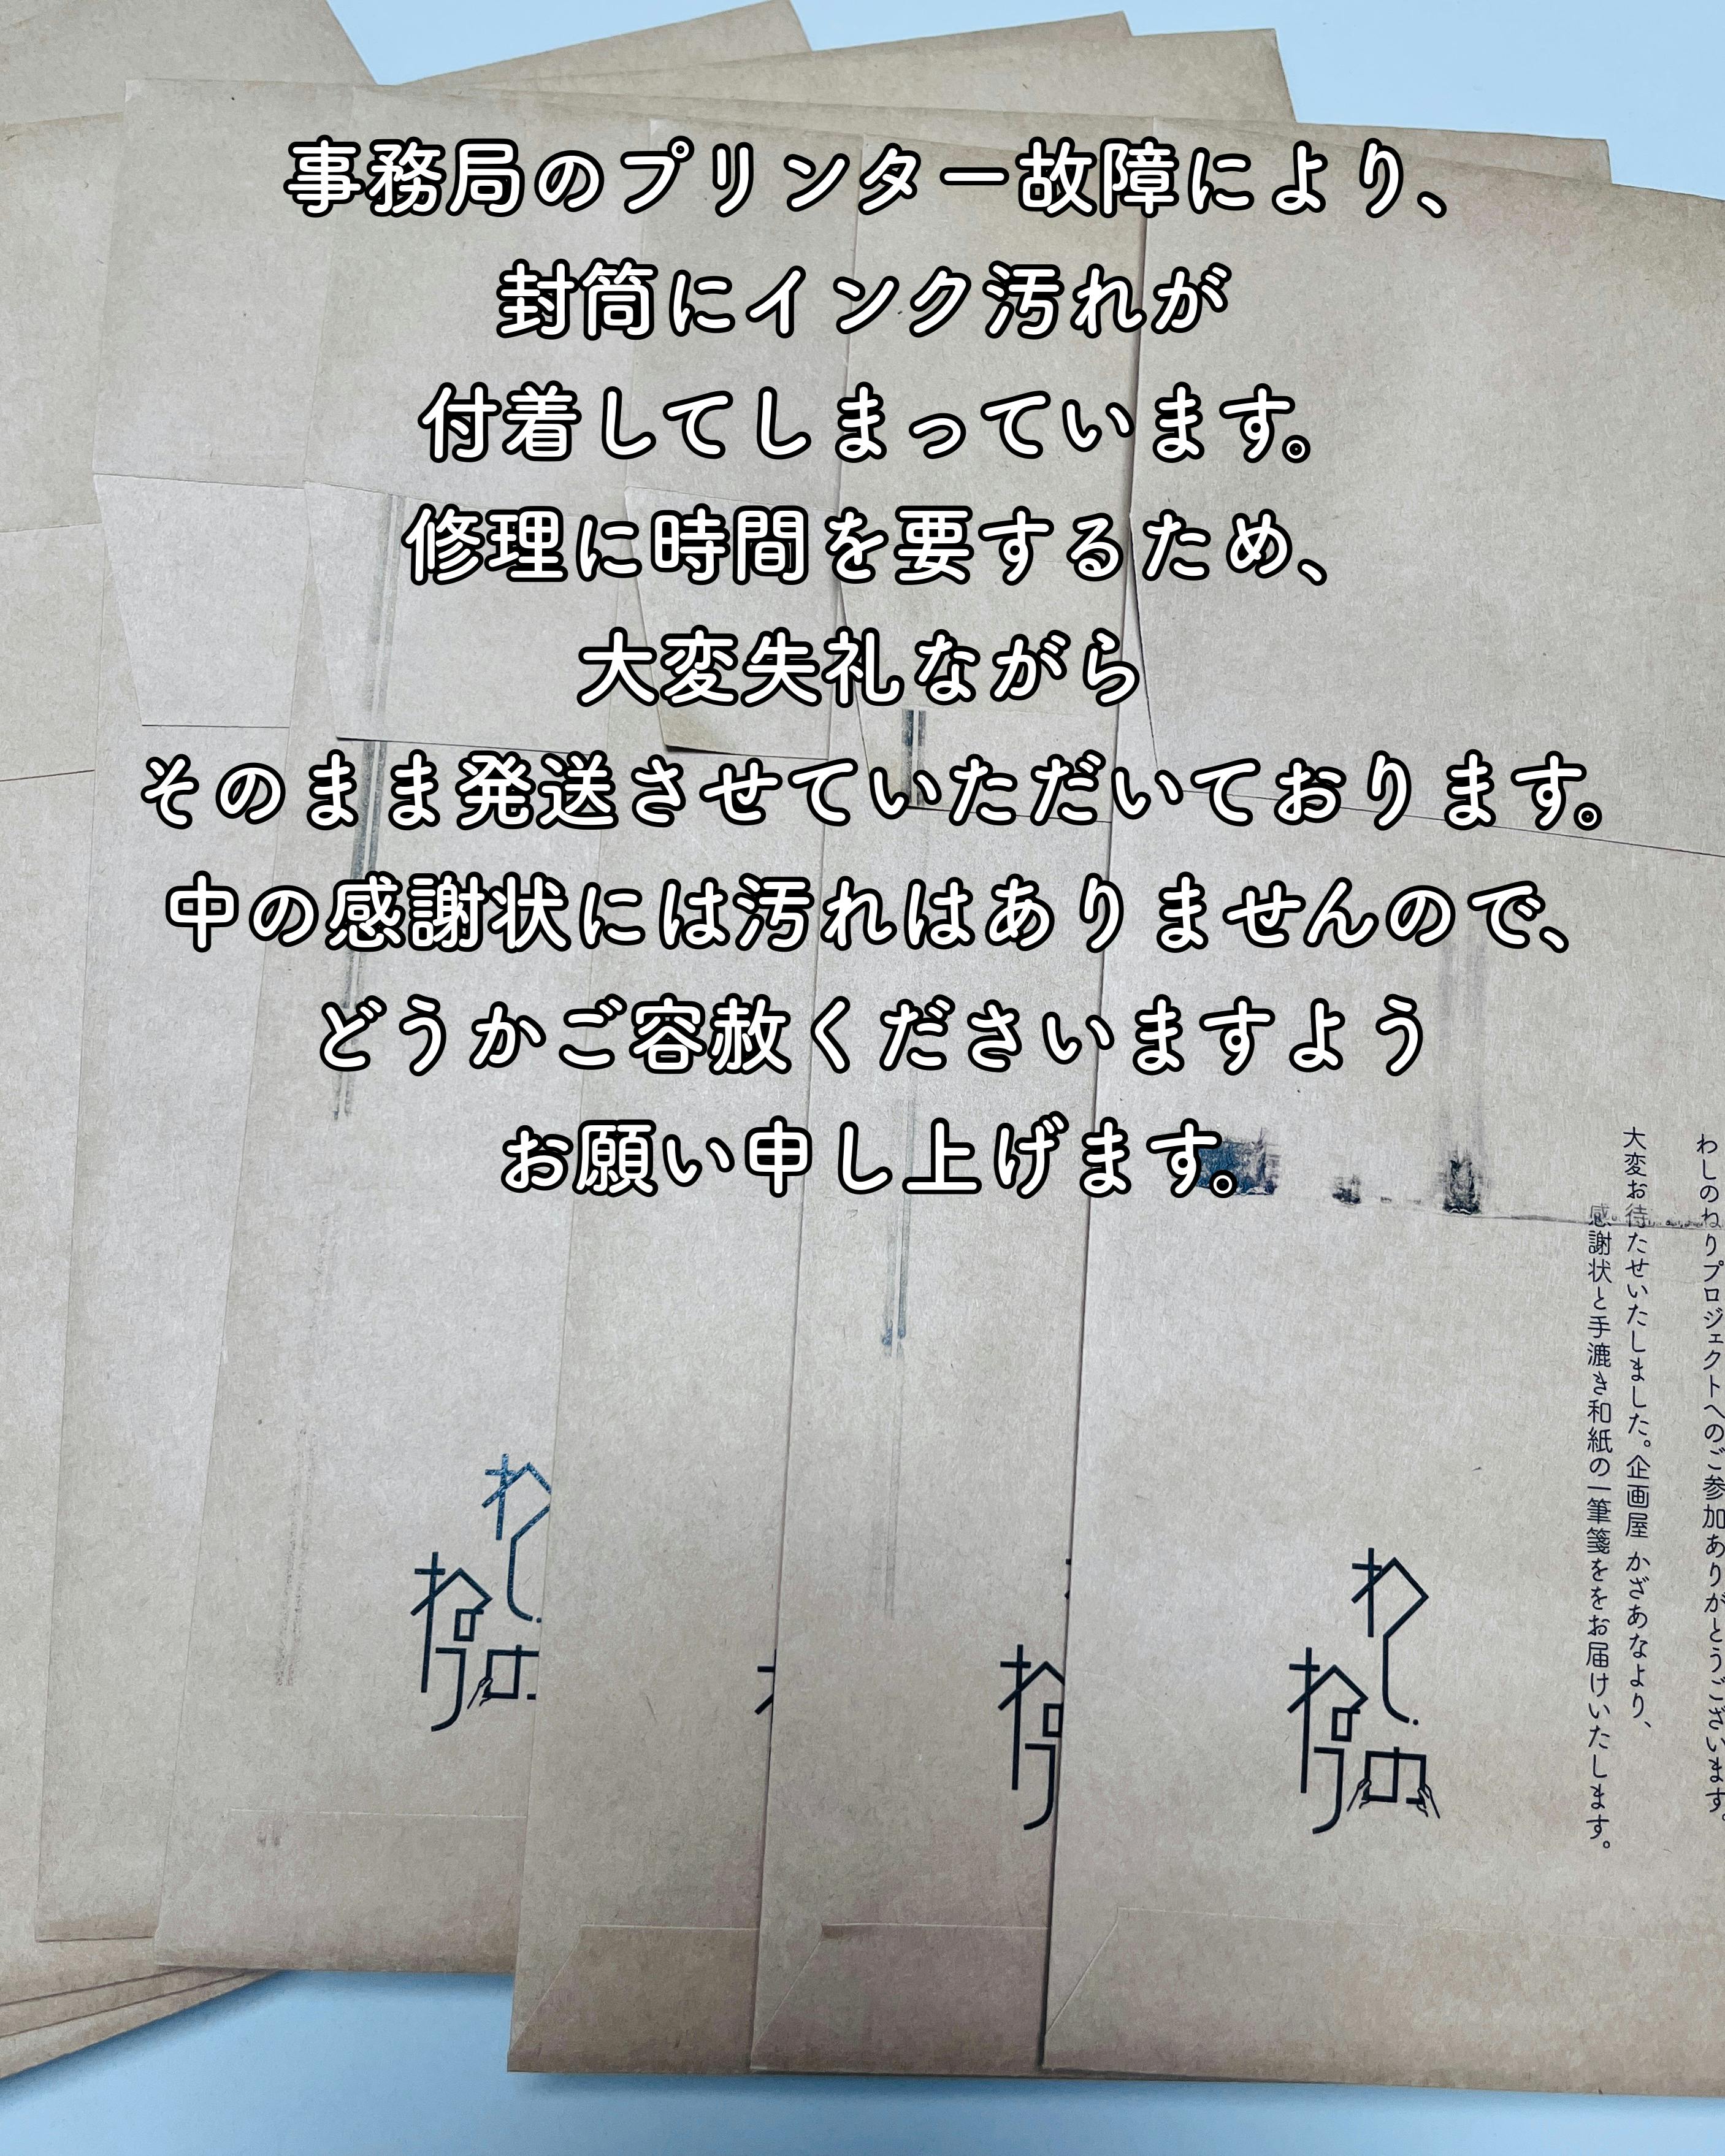 事務局のプリンター故障により、
封筒にインク汚れが
付着してしまっています。
修理に時間を要するため、
大変失礼ながら
そのまま発送させていただいております。
中の感謝状には汚れはありませんので、
どうかご容赦くださいますよう
お願い申し上げます。
わしのねりプロジェクトへのご参加ありがとうございます。
大変お待たせいたしました。企画屋 かざあなより、
感謝状と手漉き和紙の一筆箋ををお届けいたします。
わし
ねり
わし
の
ねり